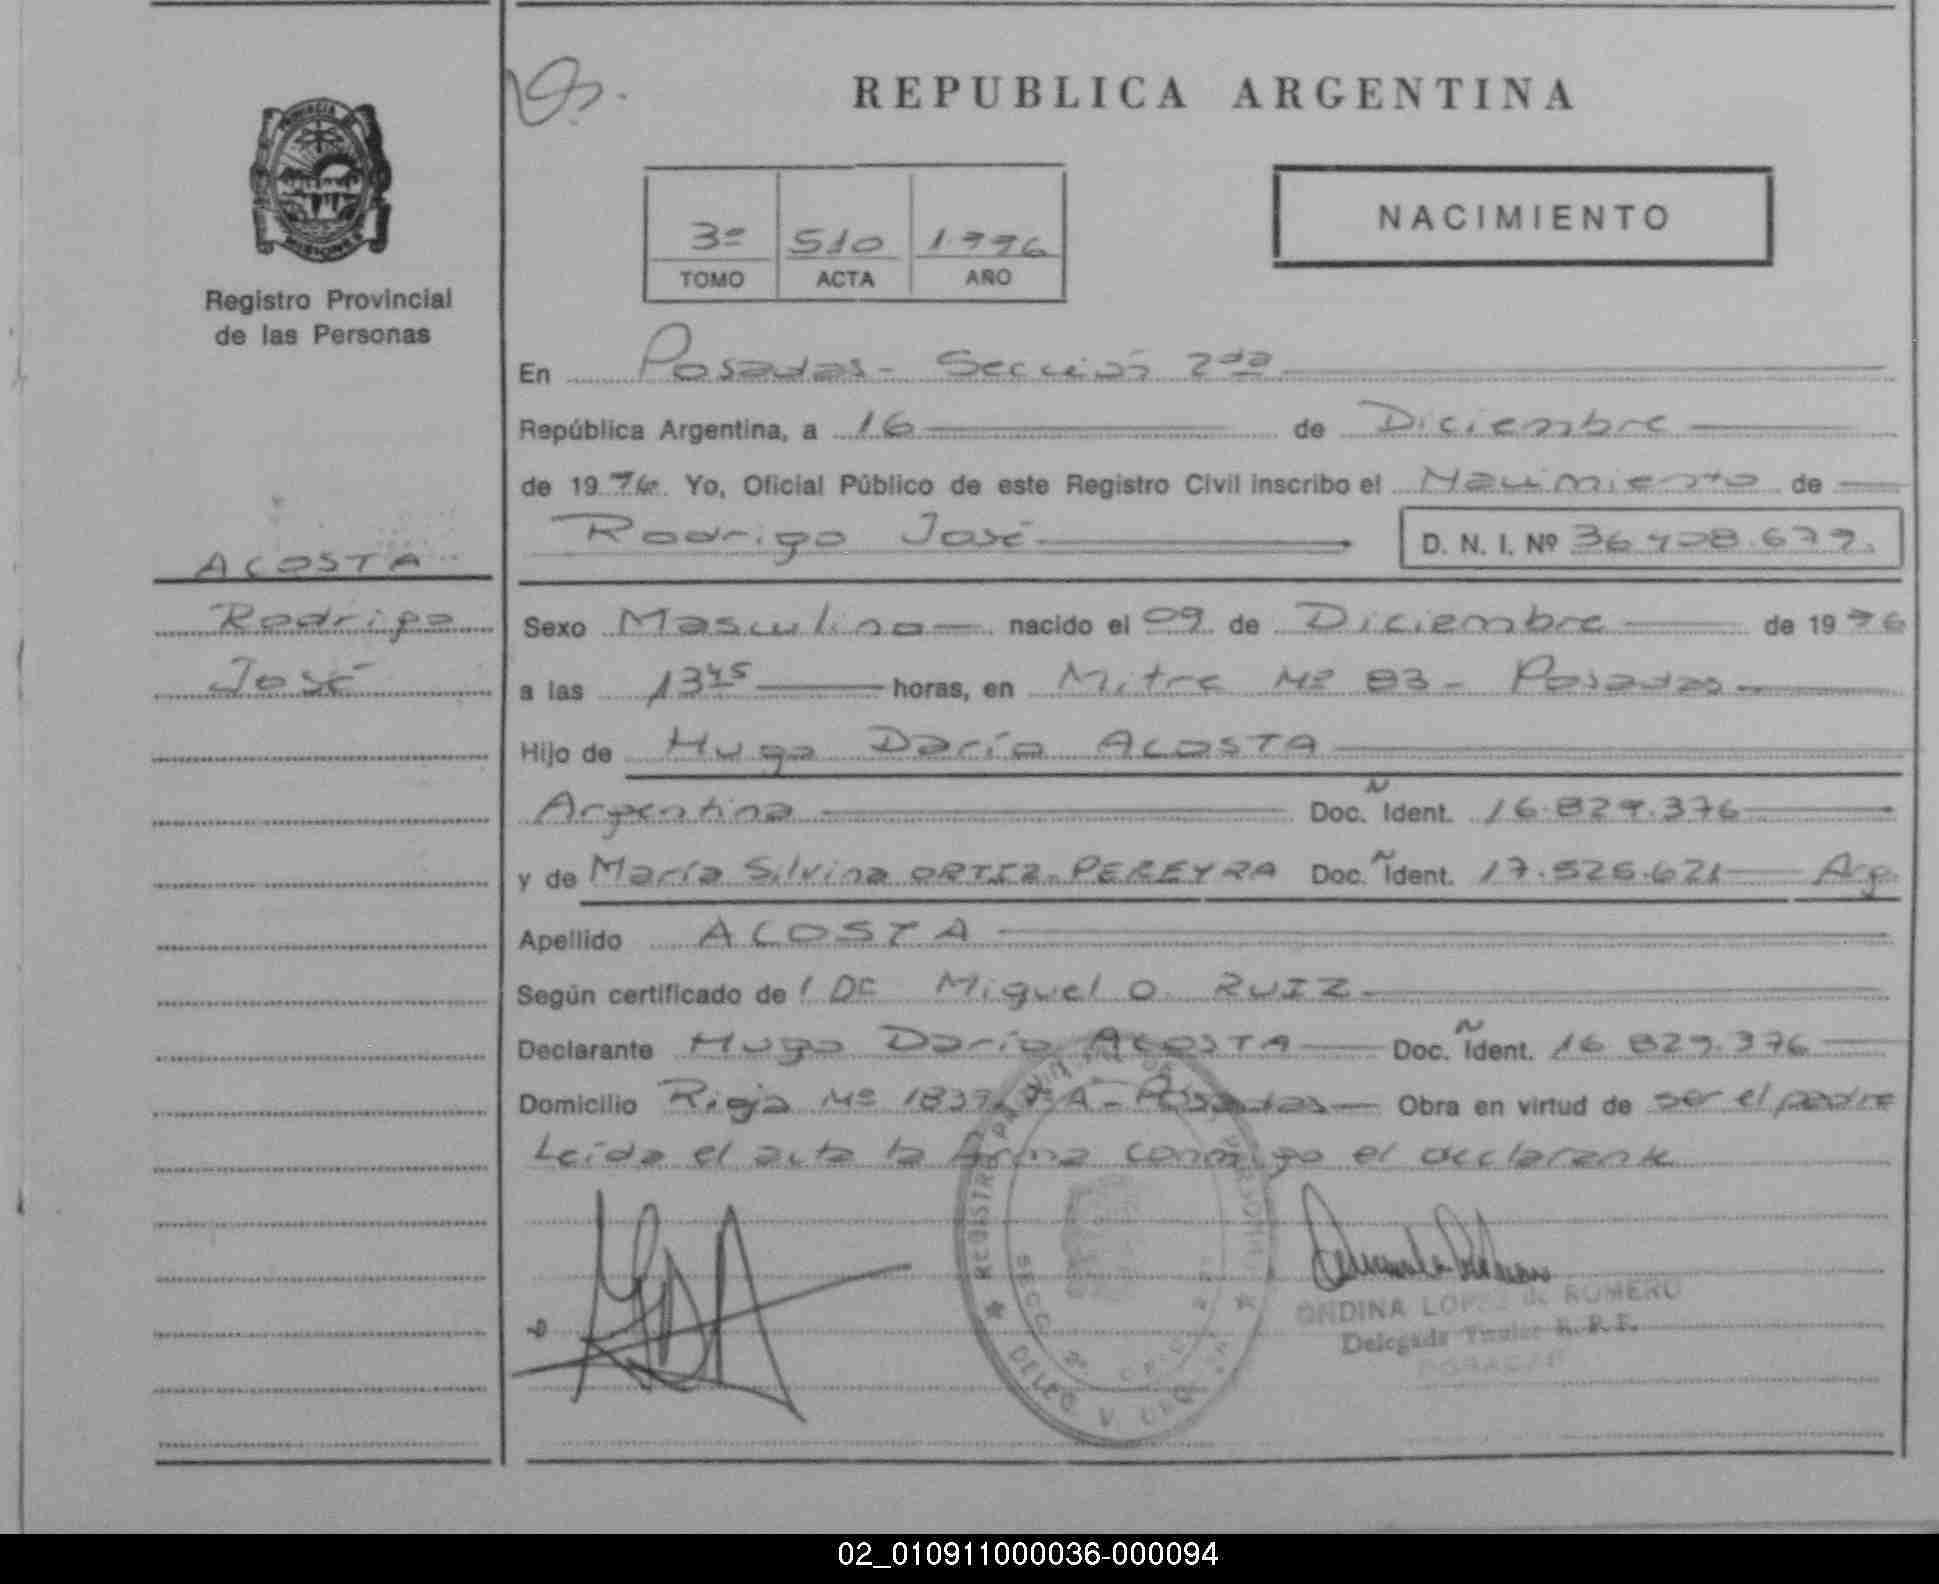 REPUBLICA ARGENTINA
PROVINCIA
MISIONES
Registro Provincial
de las Personas
3º 510 1996
TOMO ACTA AÑO
NACIMIENTO
En Posadas - Sección 2da
República Argentina, a 16 de Diciembre
de 1996. Yo, Oficial Público de este Registro Civil inscribo el Nacimiento de
Rodrigo José D. N. I. Nº
ACOSTA
Rodrigo
José
Sexo Masculino nacido el 09 de Diciembre de 1996
a las 13 45 horas, en Mitre Nº 83 - Posadas
Hijo de Hugo Darío ACOSTA
Argentina Doc. Ñ Ident. 16.829.376
y de María Silvina ORTIZ PEREYRA Doc. Ñ Ident. 17.526.621 Arg.
Apellido ACOSTA
Según certificado del Dr Miguel O. RUIZ
Declarante Hugo Darío ACOSTA Doc. Ñ Ident. 16.829.376
Domicilio Rioja Nº 1837 7º A - Posadas Obra en virtud de ser el padre
Leída el acta la firma conmigo el declarante
REGISTRO PROVINCIAL DE LAS PERSONAS
SECC. 2ª
ONDINA LOPEZ de ROMERO
Delegada Titular R. P. P.
POSADAS
02_010911000036-000094